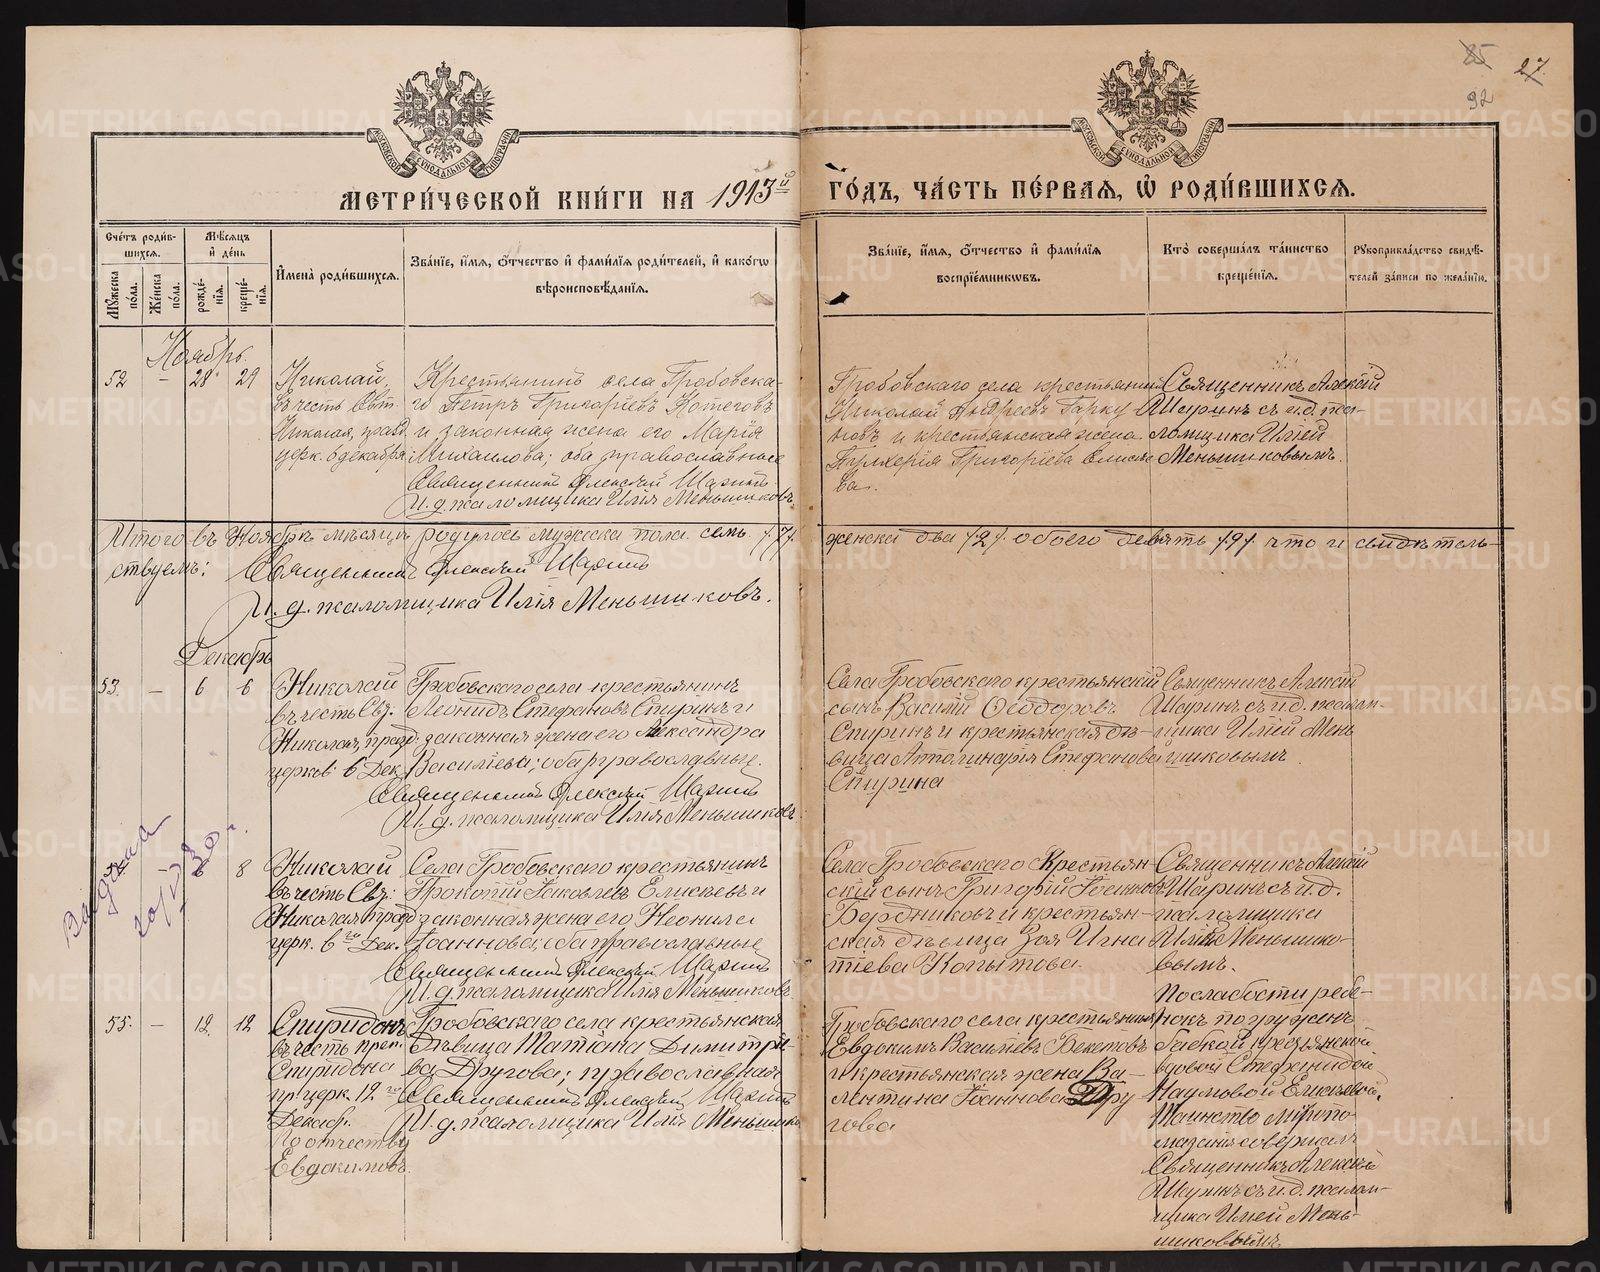 85 27.
92
МЕТРИ́ЧЕСКОЙ КНИ́ГИ НА 1913й ГО́ДЪ, ЧА́СТЬ ПЕ́РВАЯ, Ѡ҆ РОДИ́ВШИХСЯ.
Сче́тъ роди́вшихся.
Мꙋ́жеска по́ла.
Же́нска по́ла.
Мѣ́сяцъ и҆ де́нь
рожде́нїя.
креще́нїя.
И҆мена̀ роди́вшихся.
Зва́нїе, и҆́мя, ѻ҆́тчество и҆ фами́лїя роди́телей, и҆ како́гѡ
вѣроисповѣ́данїя.
Зва́нїе, и҆́мя, ѻ҆́тчество и҆ фами́лїя
воспрїе́мникѡвъ.
Кто̀ соверша́лъ та́инство
креще́нїя.
Рꙋкоприкла́дство свидѣ́-
телей за́писи по жела́нїю.
Ноябрь
52 — 28 29
Николай,
въ честь Свт.
Николая, празд.
церк. 6 декабря
Крестьянинъ села Гробовска-
го Петръ Григорiевъ Котеговъ
и законная жена его Марiя
Михаилова; оба православные
Священникъ Алексiй Шаринъ
И. д. псаломщика Илiя Меньшиковъ
Гробовскаго села крестьянинъ
Николай Андреевъ
и крестьянская жена
Григорiева Елисее
ва.
Священникъ Алексiй
Шаринъ съ и. д. пса-
ломщика Илiей
Меньшиковымъ.
Итого въ Ноябрѣ мѣсяцѣ родилось мужеска пола семь /7/. женска два /2/ обоего девять /9/ что и свидѣтель-
ствуемъ: Священникъ Алексiй Шаринъ
И. д. псаломщика Илiя Меньшиковъ.
Декабрь
53. — 6 6
Николай
въ честь Свт.
Николая, празд.
церков. 6 Дек.
Гробовскаго села крестьянинъ
Леонидъ Стефановъ Спиринъ и
законная жена его Александра
Василiева; оба православные.
Священникъ Алексiй Шаринъ
И. д. псаломщика Илiя Меньшиковъ
Села Гробовскаго крестьянскiй
сынъ Василiй Ѳеодоровъ
Спиринъ и крестьянская дѣ-
вица Апполинарiя Стефанова
Спирина
Священникъ Алексiй
Шаринъ съ и. д. псалом-
щика Илiей Мень
шиковымъ
6 8
Николай
въ честь Свт.
Николая празд.
церк. 6го Дек.
Села Гробовскаго крестьянинъ
Прокопiй Iаковлевъ Елисеевъ и
законная жена его Неонила
Iоаннова; оба православные
Священникъ Алексiй Шаринъ
И. д. псаломщика Илiя Меньшиковъ
Села Гробовскаго Крестьян-
скiй сынъ Григорiй Iоанновъ
Бердниковъ и крестьян-
ская дѣвица Зоя Игна
тiева Копытова.
Священникъ Алексiй
Шаринъ съ и. д.
псаломщика
Илiей Меньшико-
вымъ.
55. — 12. 12
Спиридонъ
въ честь преп.
Спиридона
пр. церк. 12го
Декабр.
По отчеству
Евдокимовъ.
Гробовскаго села крестьянская
дѣвица Татiана Димитрiе-
ва Другова; православная
Священникъ Алексiй Шаринъ
И. д. псаломщика Илiя Меньшико
Гробовскаго села крестьянинъ
Евдокимъ Василiевъ Бекетовъ
и крестьянская жена Ва-
лентина Iоаннова Дру
гова
По слабости ребе-
нокъ погруженъ
бабкой крестьянской
вдовой Стефанидой
Наумовой Елисѣевой.
Таинство мѵропо-
мазанiя совершалъ
Священникъ Алексiй
Шаринъ съ и. д. псалом-
щика Илiей Мень-
шиковымъ.